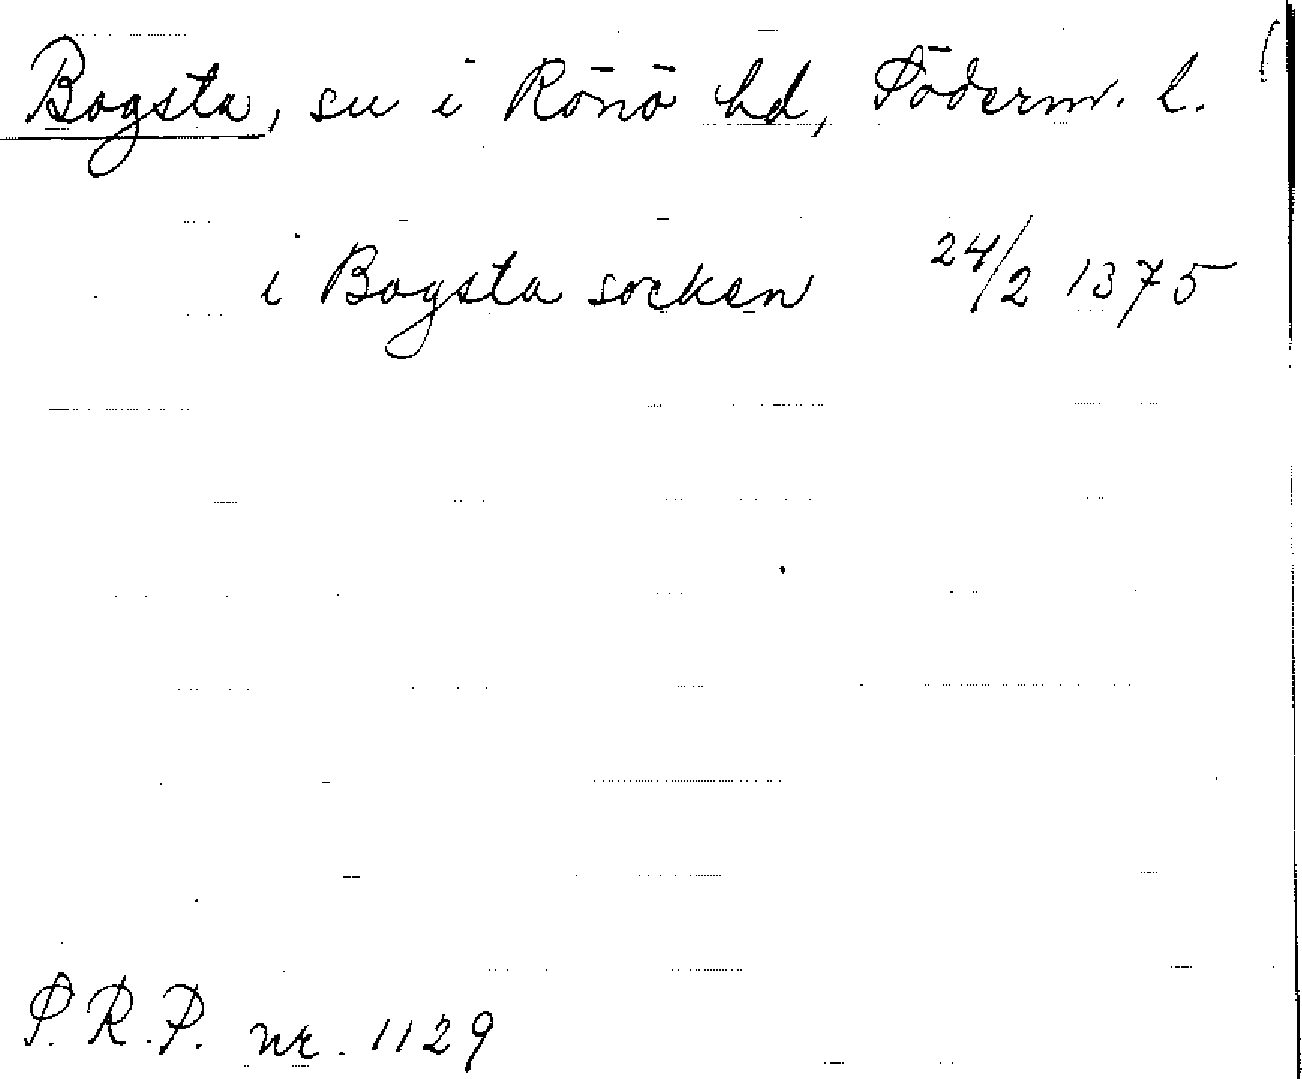 Bogsta, sn i Rönö hd, Söderm. l.
i Bogsta socken 24/2 1375
S.R.P. nr. 1129